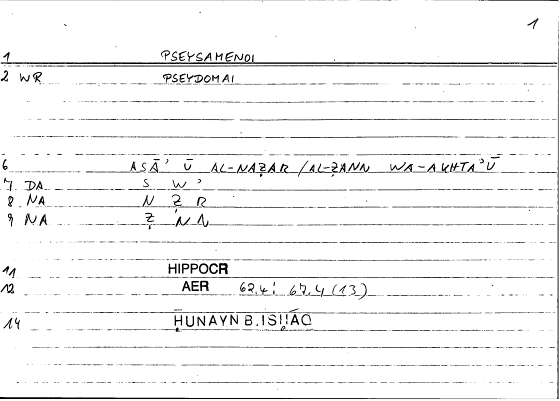 1
1 PSEYSAMENOI
2 WR PSEYDOMAI
6 ASĀʾ Ū AL-NAẒAR /AL-ẒANN WA-AKHṬAʾŪ
7 DA S W ʾ
8 NA N Ẓ R
9 NA Ẓ N N
11 HIPPOCR
12 AER 62.4: 67.4 (13)
14 ḤUNAYN B. ISḤĀQ